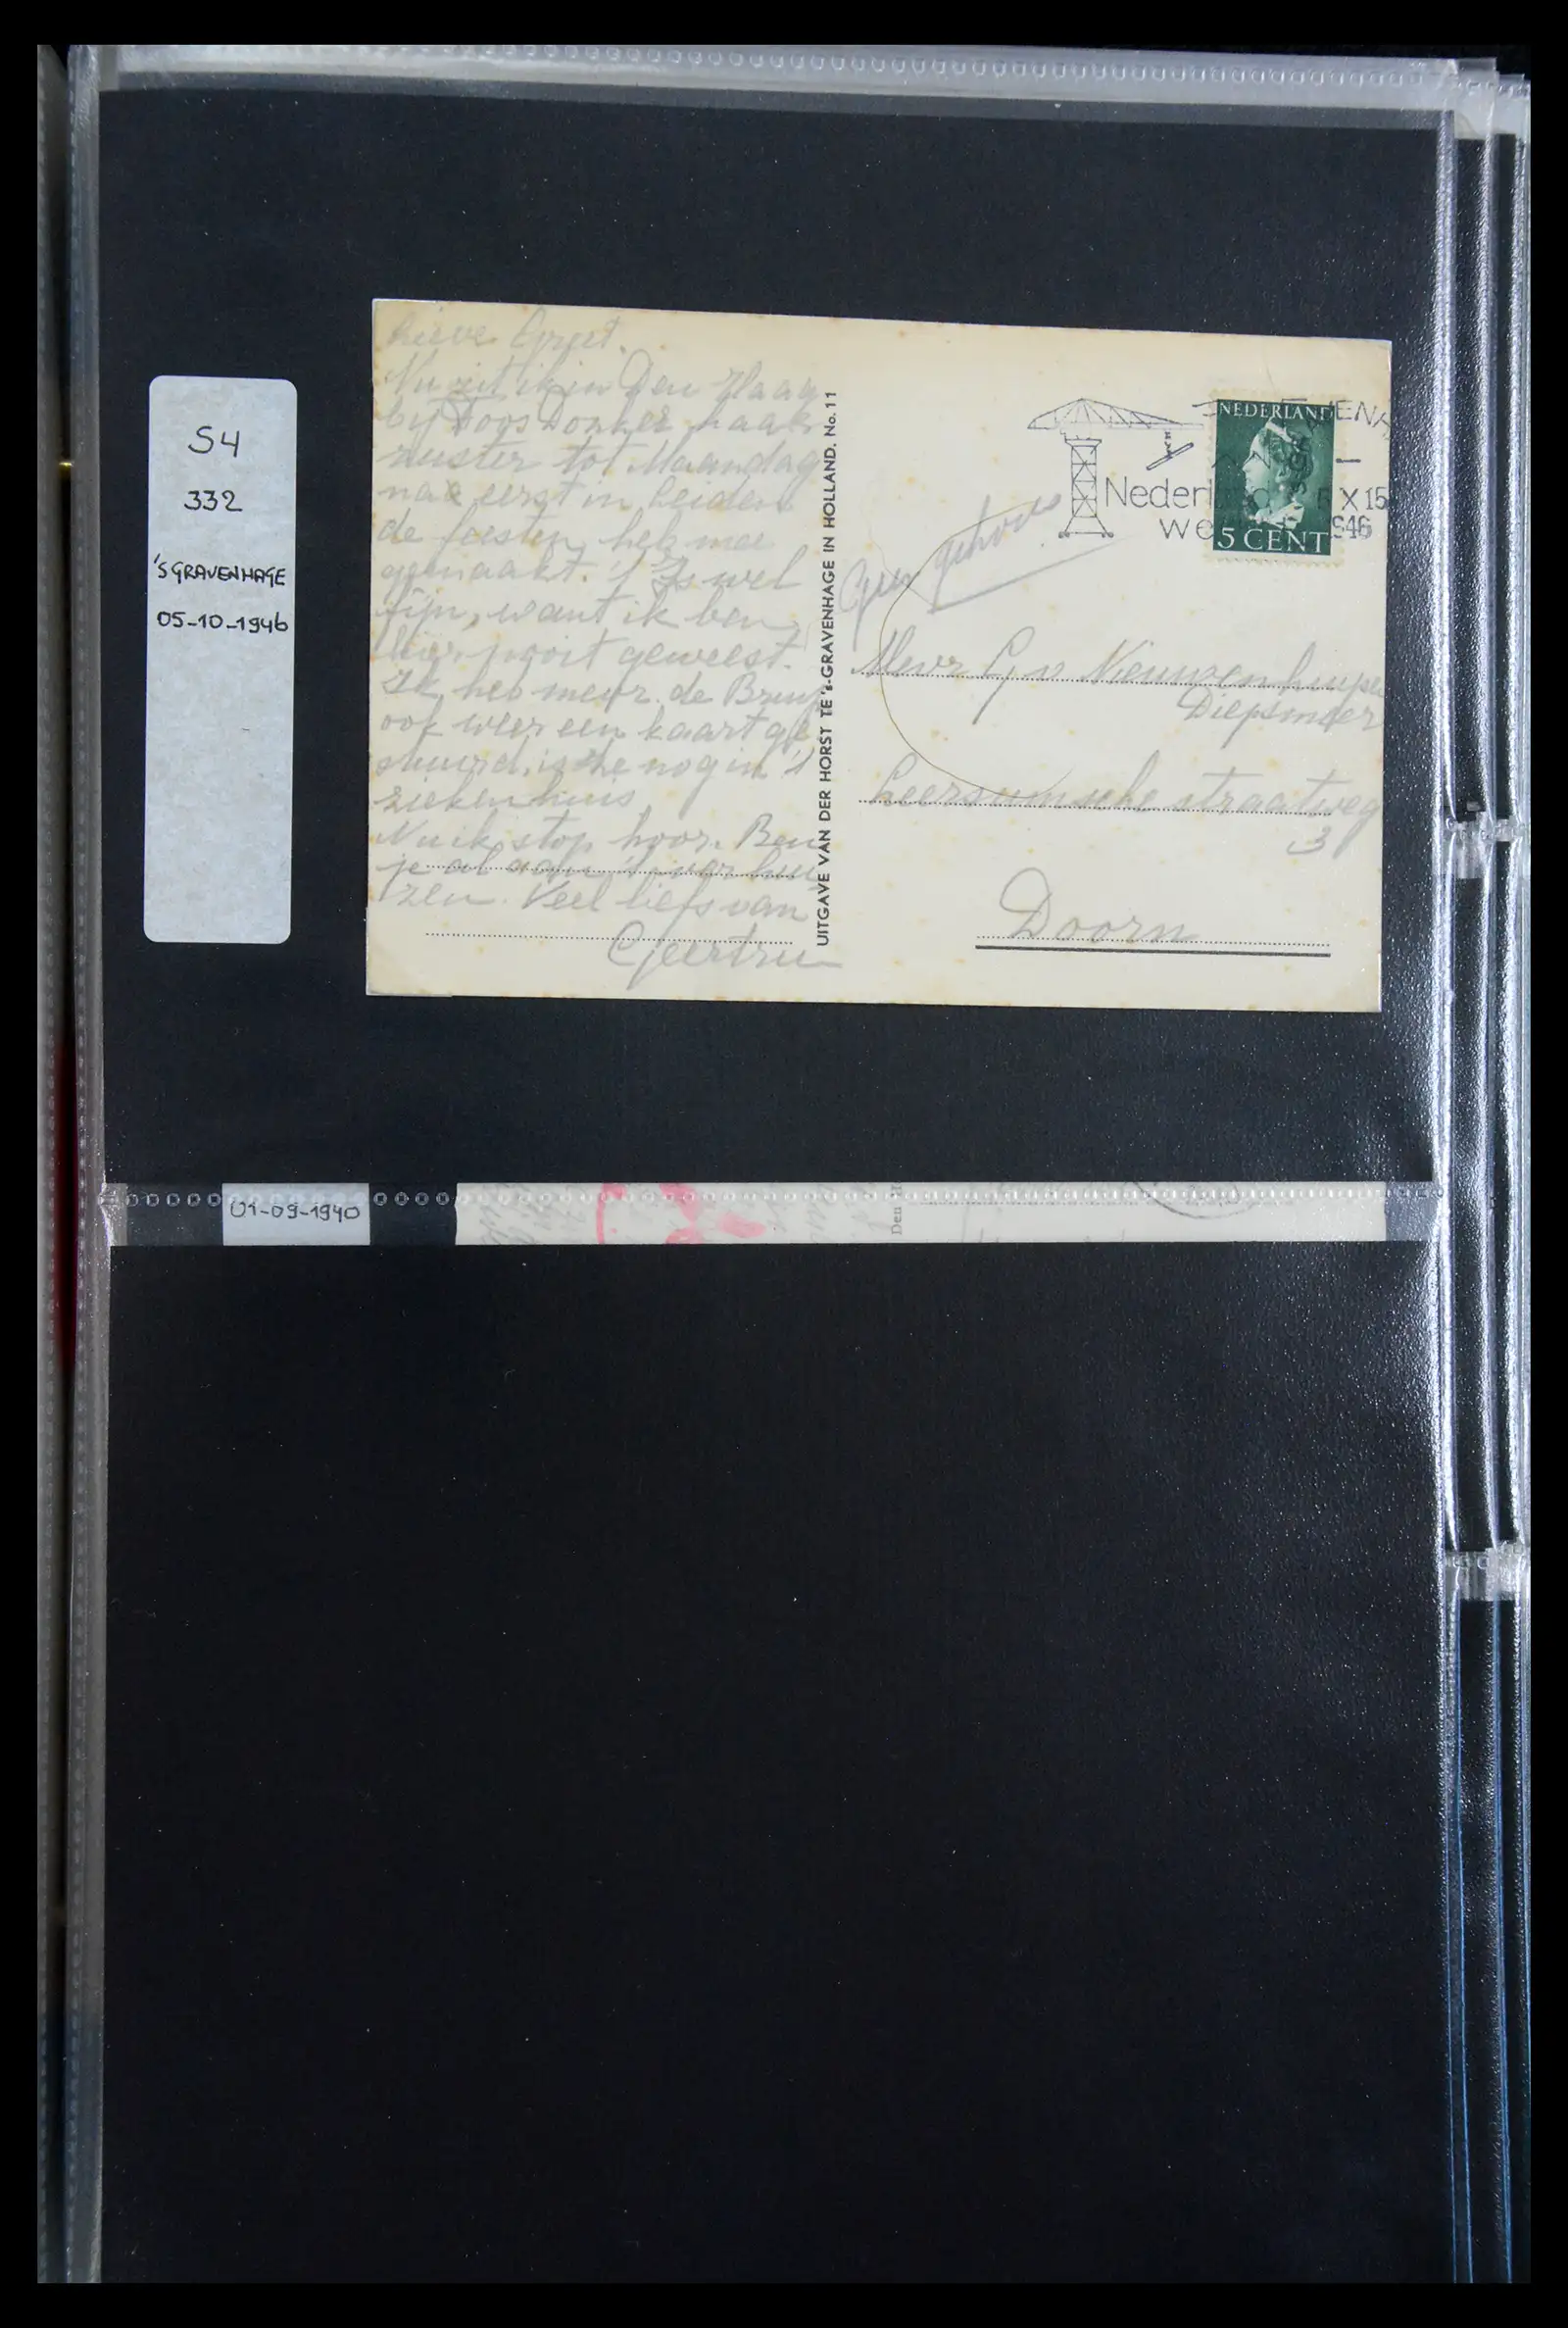 S4
332
'SGRAVENHAGE
05-10-1946
Lieve
Nu zit ik in Den Haag
bij Donker haar
zuster tot Maandag
na eerst in Leiden
de feesten heb mee
gemaakt. 't Is wel
fijn, want ik ben
hier nooit geweest.
Ik heb mevr. de Bruyn
ook weer een kaart ge
stuurd, is ze nog in 't
ziekenhuis
Nu ik stop hoor. Ben
je al aan 't verhui
zen. Veel liefs van
Geertru
UITGAVE VAN DER HORST TE 's-GRAVENHAGE IN HOLLAND. No. 11
NEDERLAND
5 CENT
Nederl
we
5 X 15
1946
Geen gehoor
Mevr G v Nieuwenhuyse
Diepsmeer
Leersumsche straatweg
3
Doorn
01-09-1940
Den H